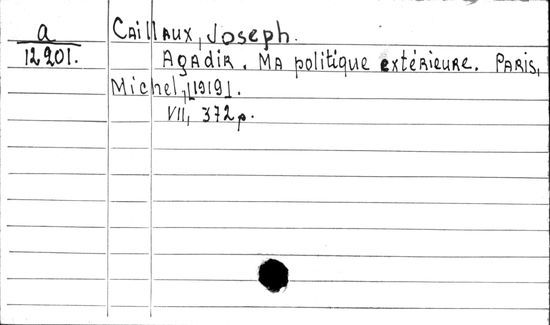 a
12201.
Caillaux, Joseph.
Agadir. Ma politique extérieure. Paris,
Michel, [1919].
VII, 372 p.